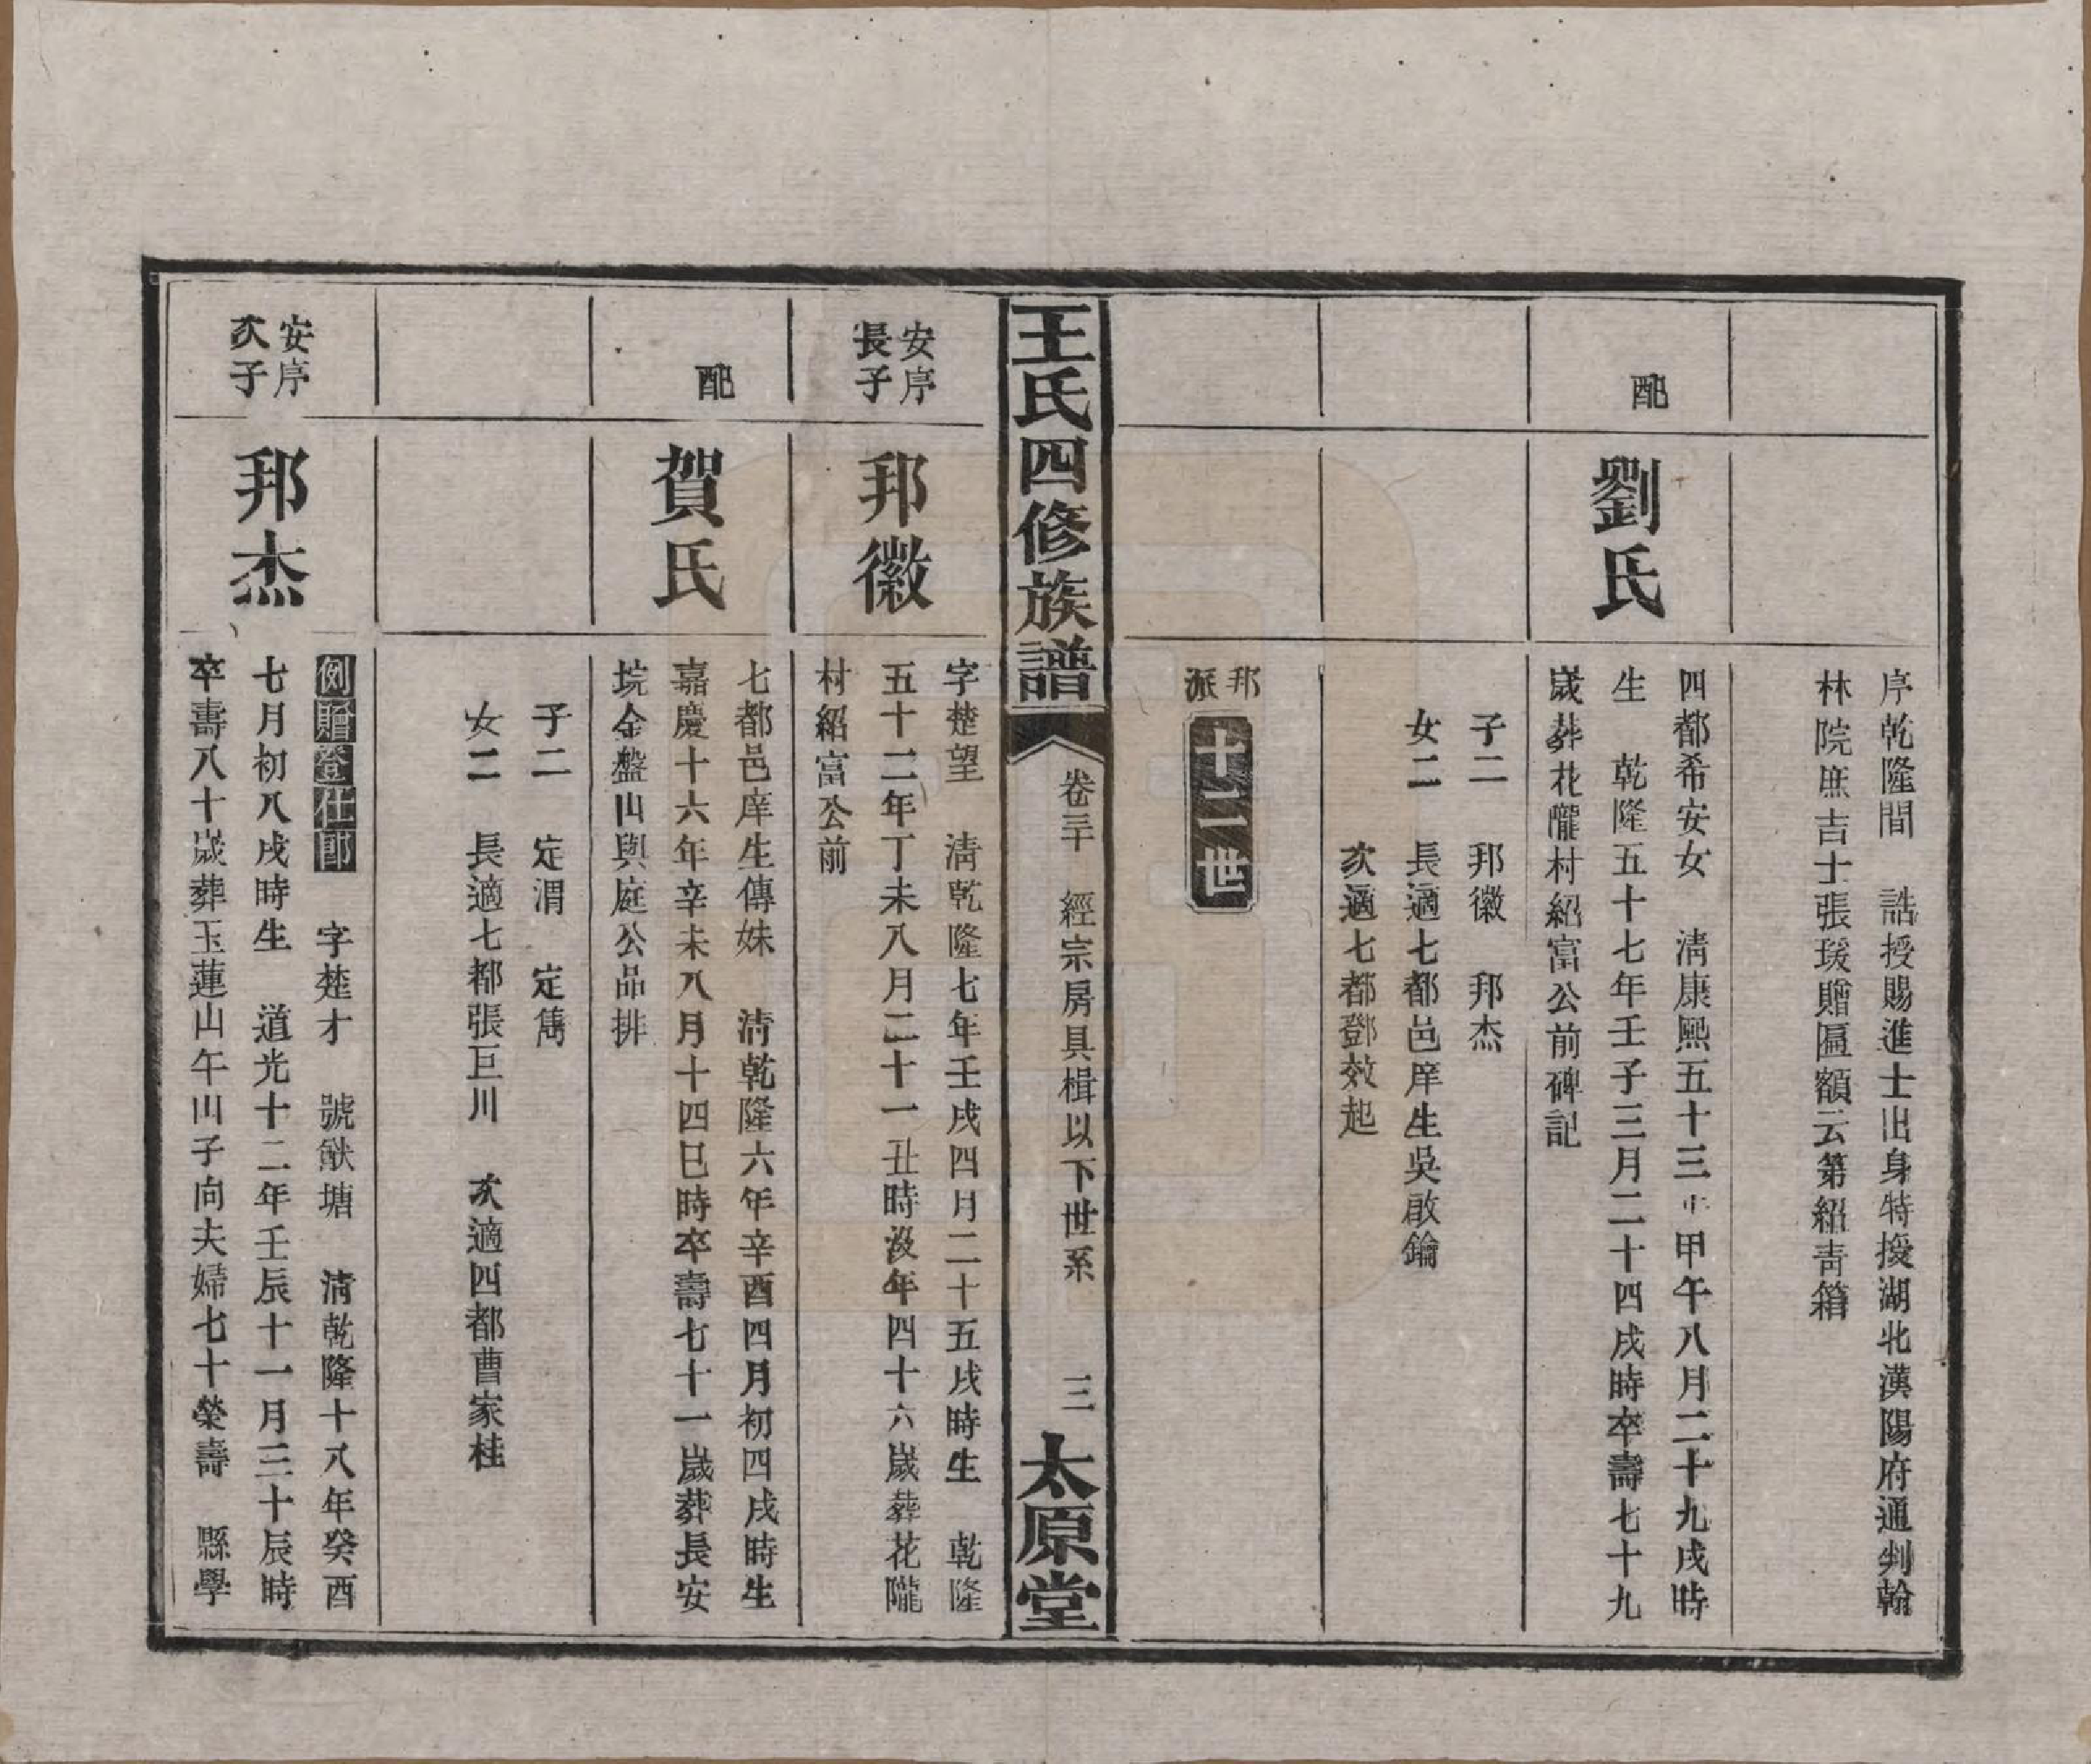 序乾隆間　誥授賜進士出身特授湖北漢陽府通判翰
林院庶吉士張瑗贈匾額云第紹青箱
配
劉氏
四都希安女　清康熙五十三年甲午八月二十九戌時
生　乾隆五十七年壬子三月二十四戌時卒壽七十九
歲葬花隴村紹富公前碑記
子二　邦徽　邦杰
女二　長適七都邑庠生吳啟鑰
次適七都鄧效起
邦派
十二世
王氏四修族譜
卷三十　經宗房具楫以下世系　三
太原堂
安序長子
邦徽
字楚望　清乾隆七年壬戌四月二十五戌時生　乾隆
五十二年丁未八月二十一丑時沒年四十六歲葬花隴
村紹富公前
配
賀氏
七都邑庠生傳妹　清乾隆六年辛酉四月初四戌時生
嘉慶十六年辛未八月十四巳時卒壽七十一歲葬長安
垸金盤山與庭公品排
子二　定渭　定雋
女二　長適七都張巨川　次適四都曹家桂
安序次子
邦杰
例贈登仕郎　字楚才　號塘　清乾隆十八年癸酉
七月初八戌時生　道光十二年壬辰十一月三十辰時
卒壽八十歲葬玉蓮山午山子向夫婦七十榮壽　縣學